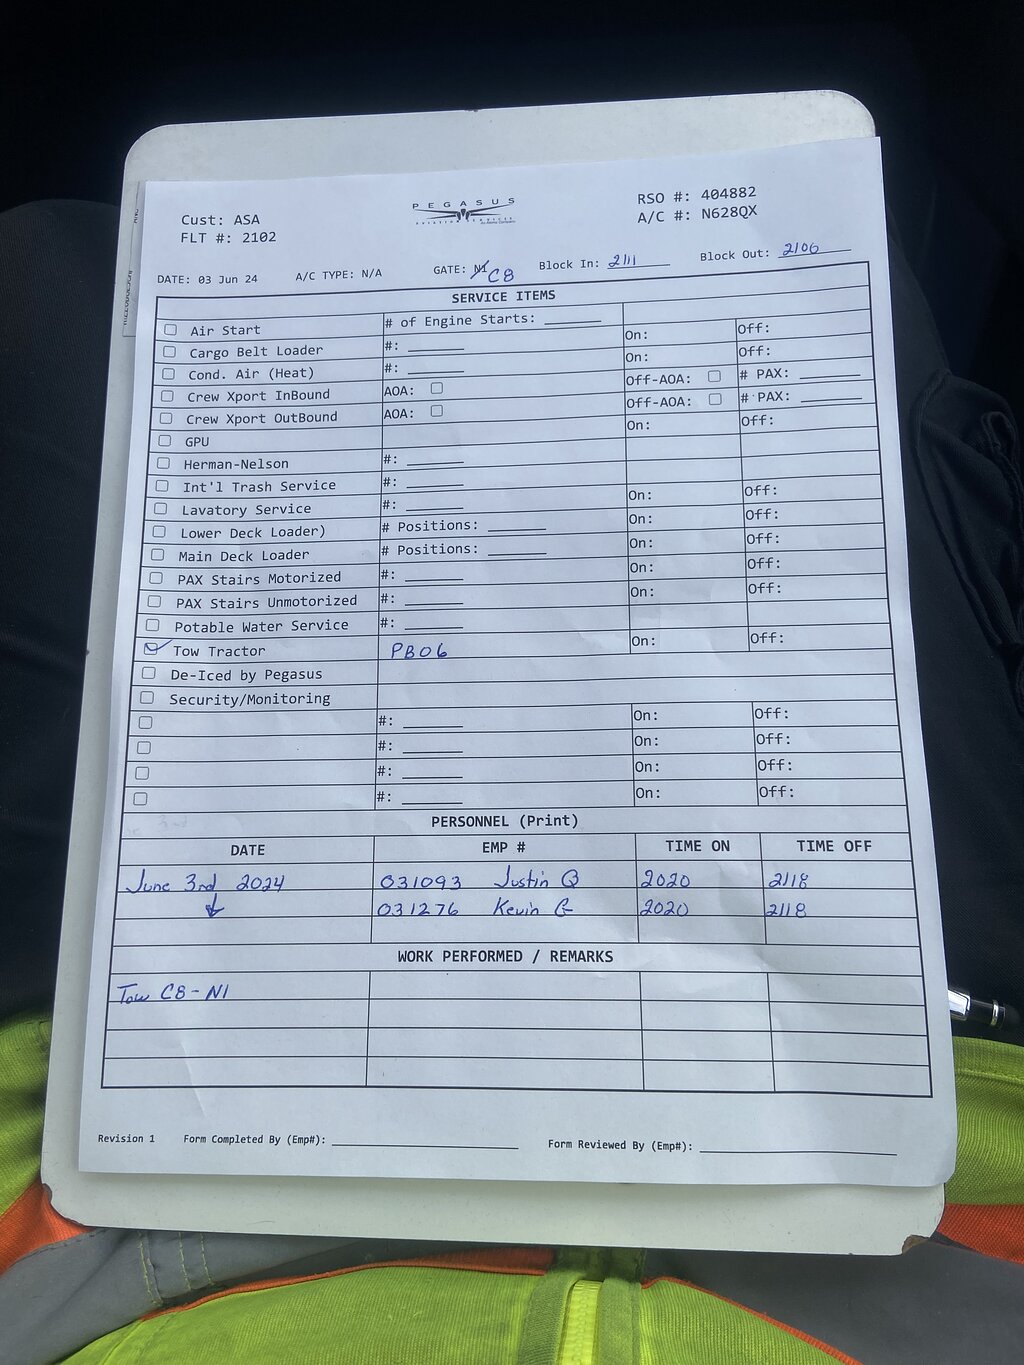 PEGASUS
Cust: ASA
FLT #: 2102
RSO #: 404882
A/C #: N628QX
DATE: 03 Jun 24 A/C TYPE: N/A GATE: N1 C8 Block In: 2111 Block Out: 2106
SERVICE ITEMS
Air Start # of Engine Starts:
Cargo Belt Loader #: On: Off:
Cond. Air (Heat) #: On: Off:
Crew Xport InBound AOA: Off-AOA: # PAX:
Crew Xport OutBound AOA: Off-AOA: # PAX:
GPU On: Off:
Herman-Nelson #:
Int'l Trash Service #:
Lavatory Service #: On: Off:
Lower Deck Loader) # Positions: On: Off:
Main Deck Loader # Positions: On: Off:
PAX Stairs Motorized #: On: Off:
PAX Stairs Unmotorized #: On: Off:
Potable Water Service #:
Tow Tractor PB06 On: Off:
De-Iced by Pegasus
Security/Monitoring
#: On: Off:
#: On: Off:
#: On: Off:
#: On: Off:
PERSONNEL (Print)
DATE EMP # TIME ON TIME OFF
June 3rd 2024 031093 Justin Q 2020 2118
031276 Kevin G 2020 2118
WORK PERFORMED / REMARKS
Tow C8-N1
Revision 1 Form Completed By (Emp#): Form Reviewed By (Emp#):